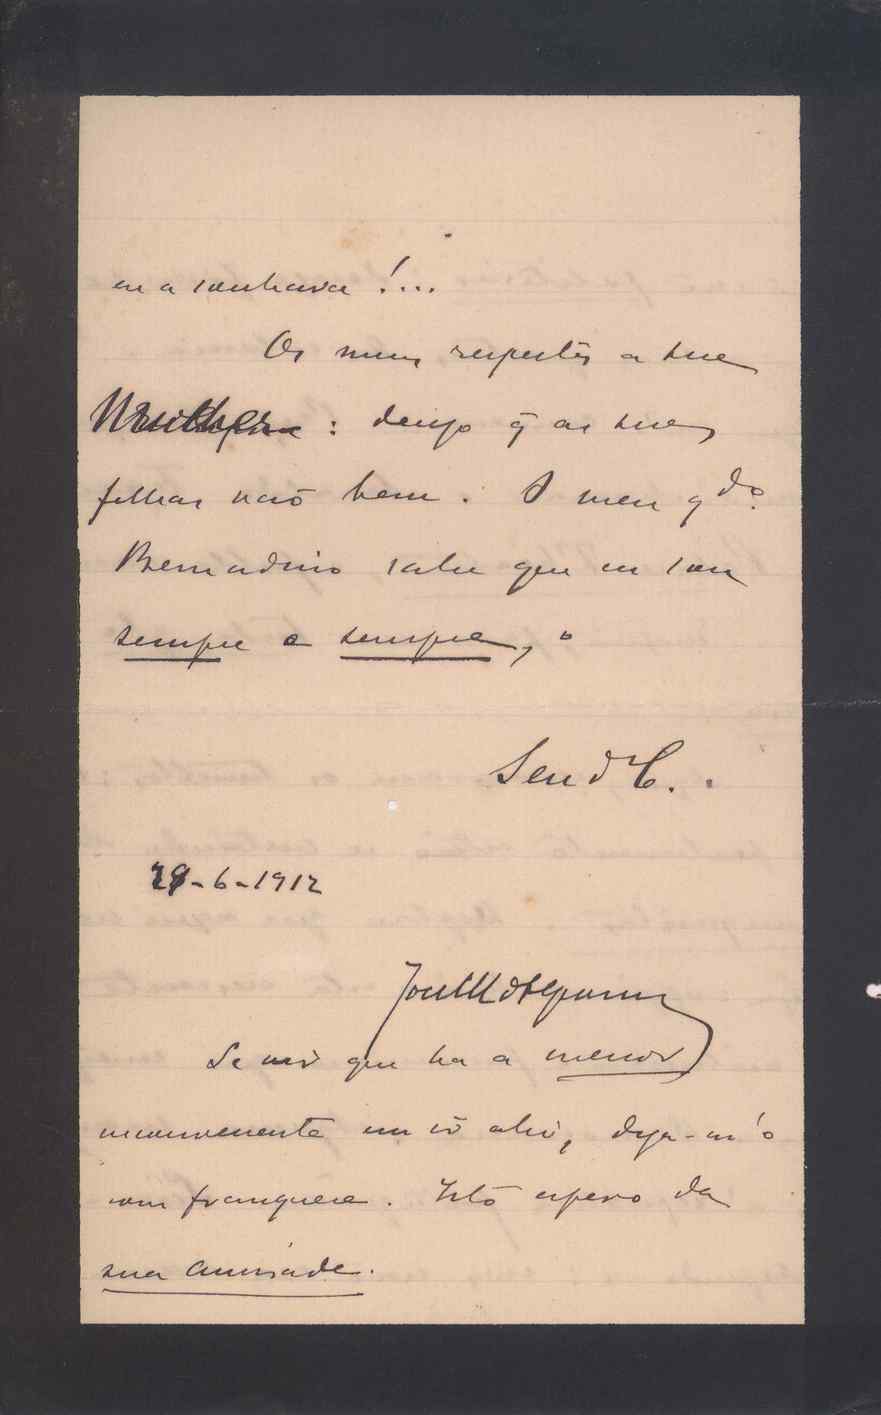 eu a sonhava!...
Os meus respeitos a sua
: desejo q̃ as suas
filhas vaõ bem. O meu qdo.
Bernardino sabe que eu sou
sempre e sempre, o
Seu d. C.
-6-1912
Se vir que ha a menor
inconveniente em ir ahi, diga-m'o
com franqueza. Isto espero da
sua amisade.